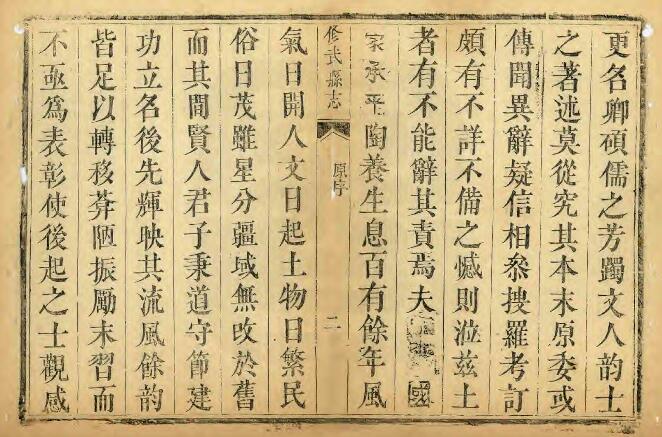 更名卿碩儒之芳躅文人韵士
之著述莫從究其本末原委或
傳聞異辭疑信相叅搜羅考訂
頗有不詳不備之憾則涖茲土
者有不能辭其責焉夫國
家承平陶養生息百有餘年風
修武縣志
原序
二
氣日開人文日起土物日繁民
俗日茂雖星分疆域無改於舊
而其間賢人君子秉道守節建
功立名後先輝映其流風餘韵
皆足以轉移莽陋振勵末習而
不亟爲表彰使後起之士觀感